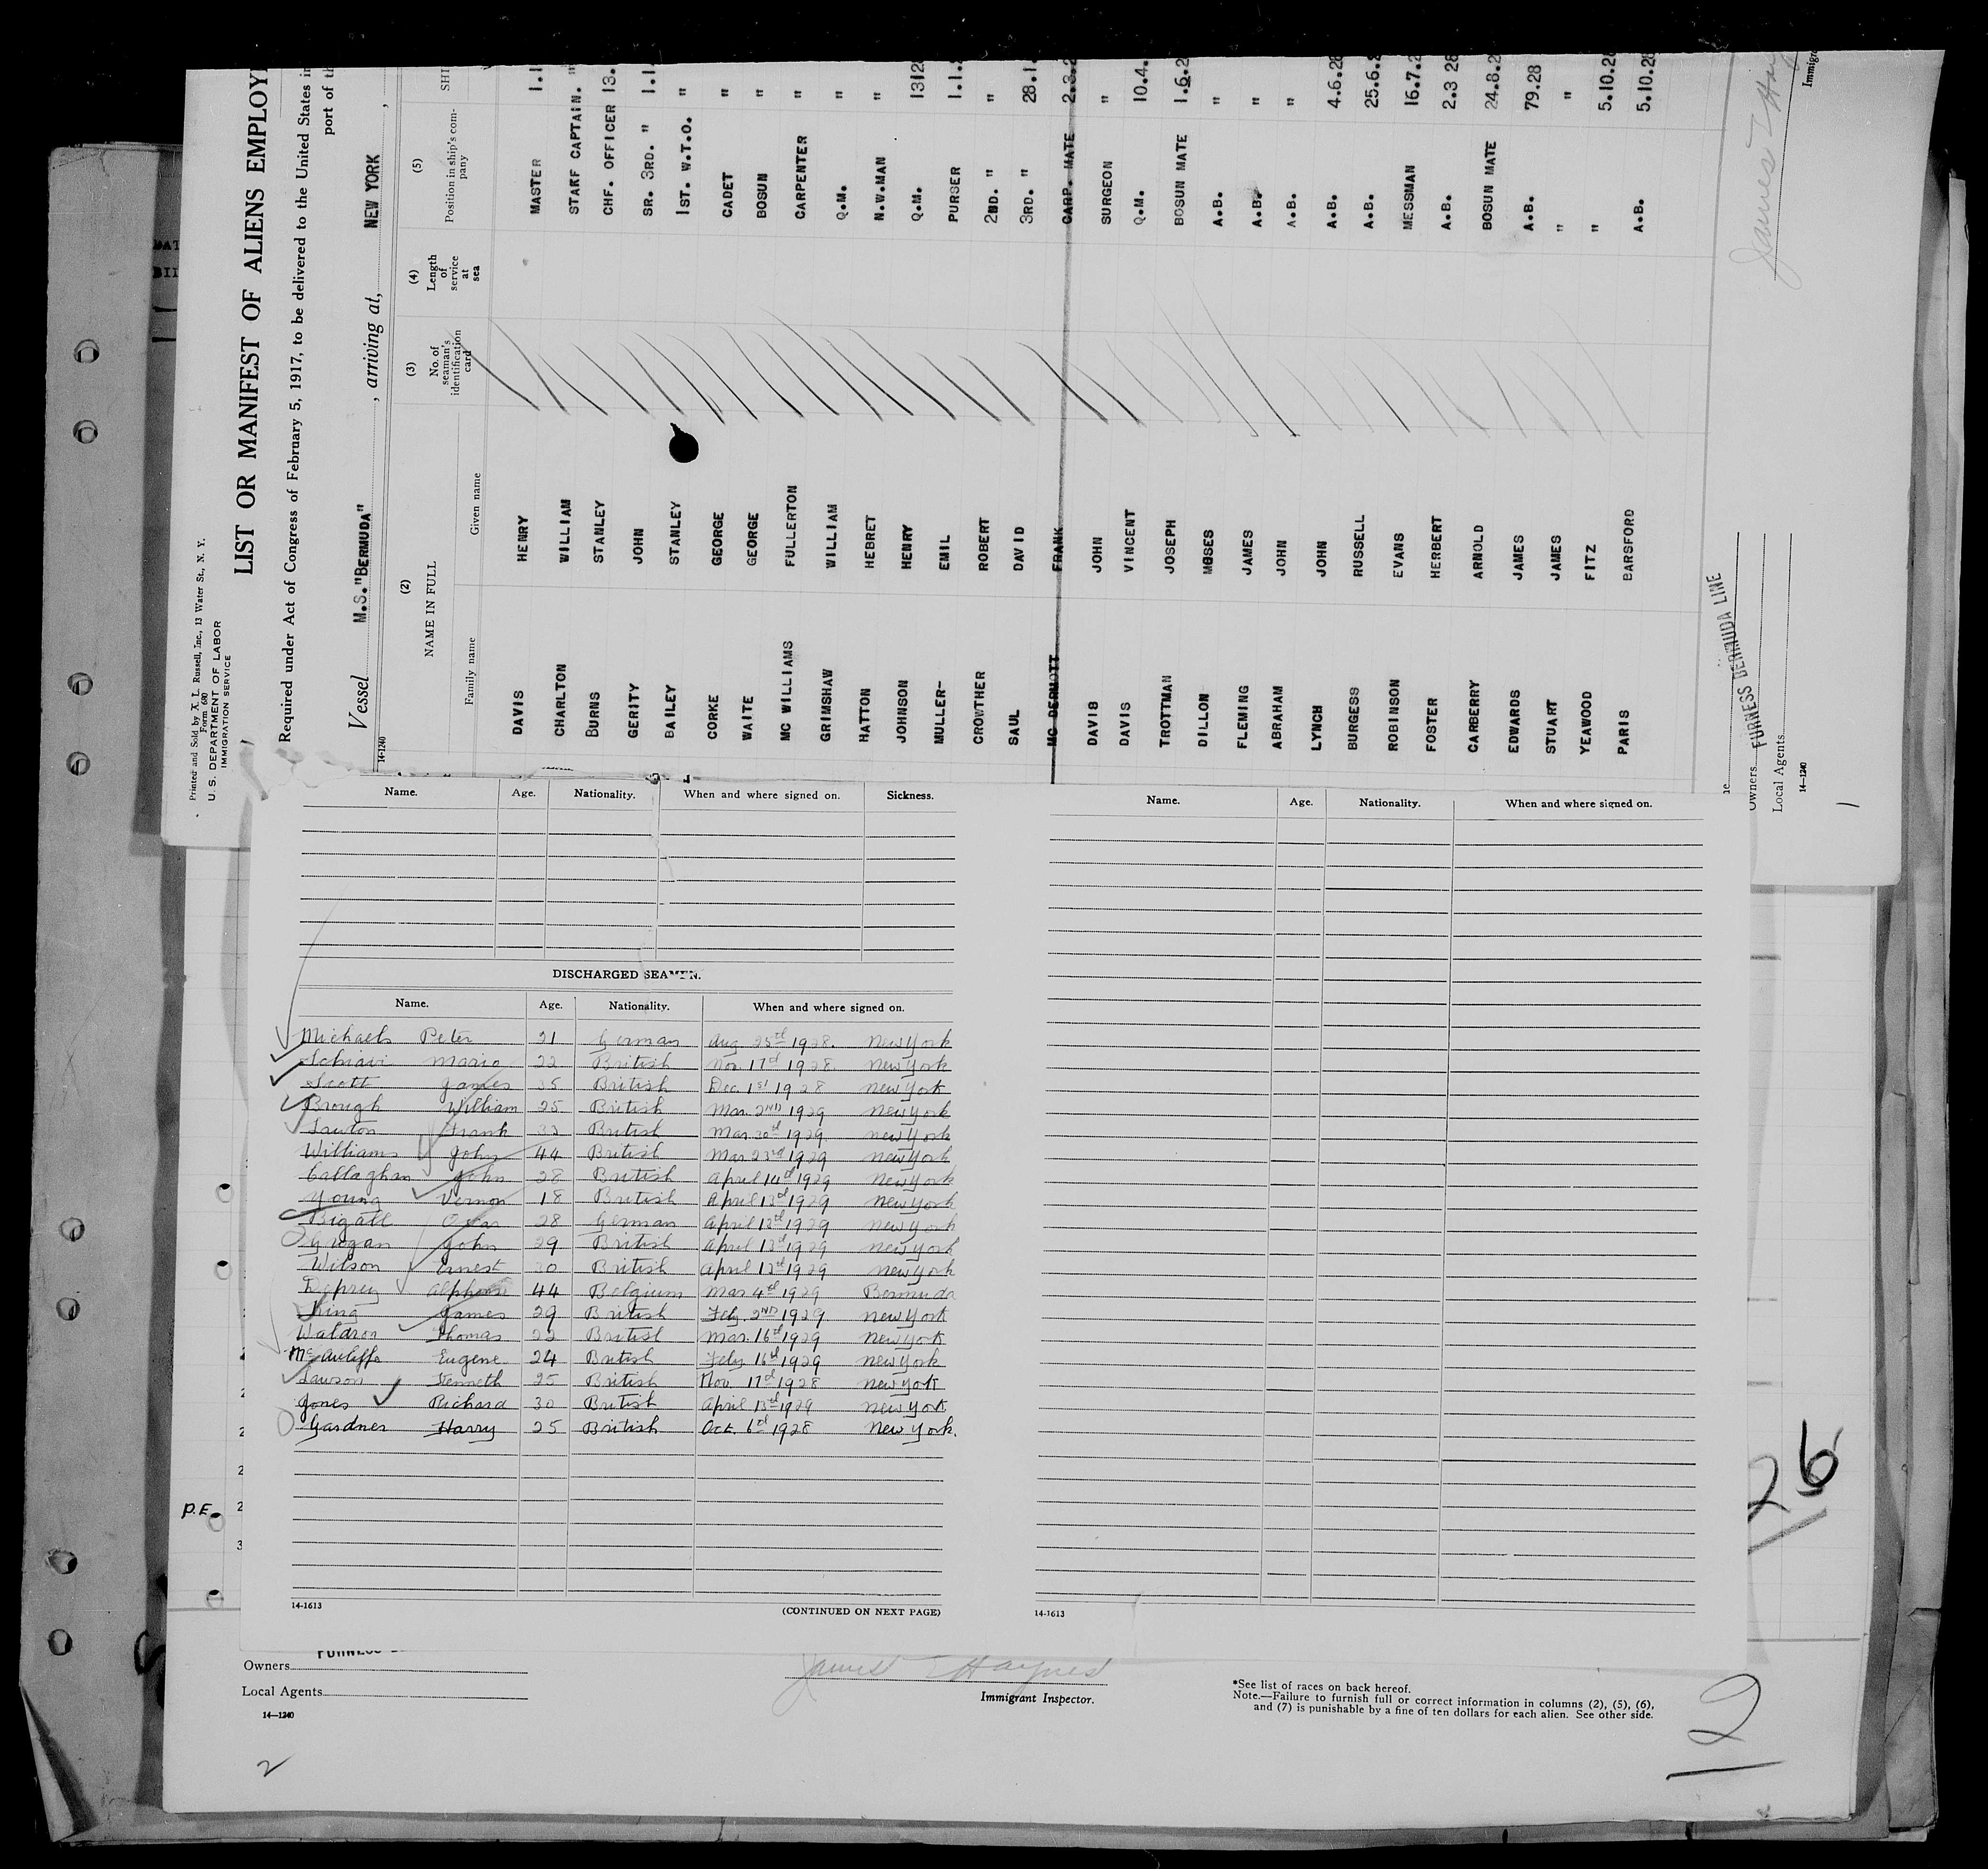 Printed and Sold by X. L. Russell, Inc., 13 Water St., N. Y.
Form 680
U. S. DEPARTMENT OF LABOR
IMMIGRATION SERVICE
LIST OR MANIFEST OF ALIENS EMPLOY
Required under Act of Congress of February 5, 1917, to be delivered to the United States in
port of th
Vessel M.S. "BERMUDA" , arriving at, NEW YORK ,
14-1240
(2) (3) (4) (5)
NAME IN FULL No. of seaman's identification card Length of service at sea Position in ship's company SHI
Family name Given name
DAVIS HENRY MASTER 1.1
CHARLTON WILLIAM STAFF CAPTAIN. "
BURNS STANLEY CHF. OFFICER 13.
GERITY JOHN SR. 3RD. " 1.1.
BAILEY STANLEY 1ST. W.T.O. "
CORKE GEORGE CADET "
WAITE GEORGE BOSUN "
MC WILLIAMS FULLERTON CARPENTER "
GRIMSHAW WILLIAM Q.M. "
HATTON HEBRET N.W.MAN "
JOHNSON HENRY Q.M. 1312
MULLER- EMIL PURSER 1.1.
CROWTHER ROBERT 2ND. " "
SAUL DAVID 3RD. " 28.1.
MC DERMOTT FRANK CARP. MATE 2.3.2
DAVIS JOHN SURGEON "
DAVIS VINCENT Q.M. 10.4.
TROTTMAN JOSEPH BOSUN MATE 1.6.2
DILLON MOSES A.B. "
FLEMING JAMES A.B. "
ABRAHAM JOHN A.B. "
LYNCH JOHN A.B. 4.6.28
BURGESS RUSSELL A.B. 25.6.2
ROBINSON EVANS MESSMAN 16.7.2
FOSTER HERBERT A.B. 2.3 28
CARBERRY ARNOLD BOSUN MATE 24.8.2
EDWARDS JAMES A.B. 79.28
STUART JAMES " "
YEAWOOD FITZ " 5.10.28
PARIS BARSFORD A.B. 5.10.28
Owners FURNESS BERMUDA LINE
Local Agents
14-1240
James Hay
Immigr
Name. Age. Nationality. When and where signed on. Sickness.
Name. Age. Nationality. When and where signed on.
DISCHARGED SEAMEN.
Name. Age. Nationality. When and where signed on.
Michaels Peter 21 German Aug. 25th 1928. New York
Schiavi Mario 22 British Nov. 17th 1928. New York
Scott James 35 British Dec. 1st 1928 New York
Brough William 25 British Mar. 2nd 1929 New York
Lawton Frank 32 British Mar. 30th 1929 New York
Williams John 44 British Mar. 23rd 1929 New York
Callaghan John 28 British April 14th 1929 New York
Young Vernon 18 British April 13th 1929 New York
Bigall 28 German April 13th 1929 New York
Grogan John 29 British April 13th 1929 New York
Wilson Ernest 30 British April 13th 1929 New York
Deprey Alphonse 44 Belgium Mar 4th 1929 Bermuda
King James 29 British Feby. 2nd 1929 New York
Waldron Thomas 22 British Mar. 16th 1929 New York
McAuliffe Eugene 24 British Feby 16th 1929 New York
Lawson Kenneth 25 British Nov. 17th 1928 New York
Jones Richard 30 British April 13th 1929 New York
Gardner Harry 25 British Oct. 6th 1928 New York.
P.E.
26
14-1613
(CONTINUED ON NEXT PAGE)
14-1613
Owners
Local Agents
14-1240
James Haynes
Immigrant Inspector.
*See list of races on back hereof.
Note.—Failure to furnish full or correct information in columns (2), (5), (6),
and (7) is punishable by a fine of ten dollars for each alien. See other side.
2